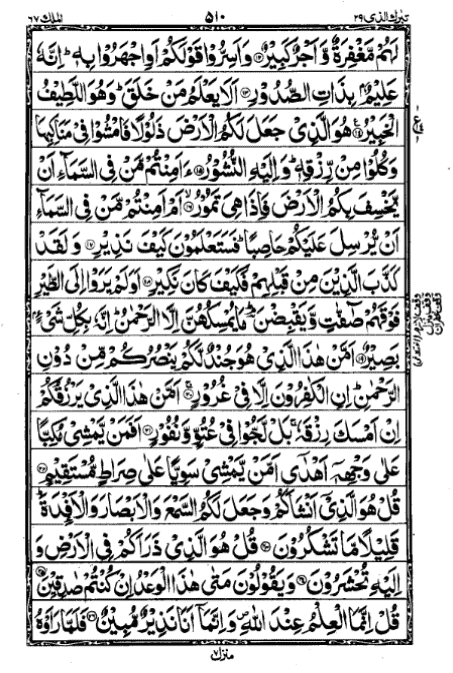 تبٰرك الذی ۲۹ ۵۱۰ الملك ۶۷
لَهُمْ مَّغْفِرَةٌ وَّاَجْرٌ كَبِیْرٌ ۝۱۲ وَاَسِرُّوْا قَوْلَكُمْ اَوِ اجْهَرُوْا بِهٖ ؕ اِنَّهٗ
عَلِیْمٌۢ بِذَاتِ الصُّدُوْرِ ۝۱۳ اَلَا یَعْلَمُ مَنْ خَلَقَ ؕ وَهُوَ اللَّطِیْفُ
الْخَبِیْرُ ۝۱۴ هُوَ الَّذِیْ جَعَلَ لَكُمُ الْاَرْضَ ذَلُوْلًا فَامْشُوْا فِیْ مَنَاكِبِهَا
وَكُلُوْا مِنْ رِّزْقِهٖ ؕ وَاِلَیْهِ النُّشُوْرُ ۝۱۵ ءَاَمِنْتُمْ مَّنْ فِی السَّمَآءِ اَنْ
یَّخْسِفَ بِكُمُ الْاَرْضَ فَاِذَا هِیَ تَمُوْرُ ۝۱۶ اَمْ اَمِنْتُمْ مَّنْ فِی السَّمَآءِ
اَنْ یُّرْسِلَ عَلَیْكُمْ حَاصِبًا ؕ فَسَتَعْلَمُوْنَ كَیْفَ نَذِیْرِ ۝۱۷ وَلَقَدْ
كَذَّبَ الَّذِیْنَ مِنْ قَبْلِهِمْ فَكَیْفَ كَانَ نَكِیْرِ ۝۱۸ اَوَلَمْ یَرَوْا اِلَی الطَّیْرِ
فَوْقَهُمْ صٰٓفّٰتٍ وَّیَقْبِضْنَ ؔۘ مَا یُمْسِكُهُنَّ اِلَّا الرَّحْمٰنُ ؕ اِنَّهٗ بِكُلِّ شَیْءٍۭ
بَصِیْرٌ ۝۱۹ اَمَّنْ هٰذَا الَّذِیْ هُوَ جُنْدٌ لَّكُمْ یَنْصُرُكُمْ مِّنْ دُوْنِ
الرَّحْمٰنِ ؕ اِنِ الْكٰفِرُوْنَ اِلَّا فِیْ غُرُوْرٍ ۝۲۰ اَمَّنْ هٰذَا الَّذِیْ یَرْزُقُكُمْ
اِنْ اَمْسَكَ رِزْقَهٗ ۚ بَلْ لَّجُّوْا فِیْ عُتُوٍّ وَّنُفُوْرٍ ۝۲۱ اَفَمَنْ یَّمْشِیْ مُكِبًّا
عَلٰی وَجْهِهٖۤ اَهْدٰۤی اَمَّنْ یَّمْشِیْ سَوِیًّا عَلٰی صِرَاطٍ مُّسْتَقِیْمٍ ۝۲۲
قُلْ هُوَ الَّذِیْۤ اَنْشَاَكُمْ وَجَعَلَ لَكُمُ السَّمْعَ وَالْاَبْصَارَ وَالْاَفْـِٕدَةَ ؕ
قَلِیْلًا مَّا تَشْكُرُوْنَ ۝۲۳ قُلْ هُوَ الَّذِیْ ذَرَاَكُمْ فِی الْاَرْضِ وَ
اِلَیْهِ تُحْشَرُوْنَ ۝۲۴ وَیَقُوْلُوْنَ مَتٰی هٰذَا الْوَعْدُ اِنْ كُنْتُمْ صٰدِقِیْنَ ۝۲۵
قُلْ اِنَّمَا الْعِلْمُ عِنْدَ اللّٰهِ ۪ وَاِنَّمَاۤ اَنَا نَذِیْرٌ مُّبِیْنٌ ۝۲۶ فَلَمَّا رَاَوْهُ
منزل ۷